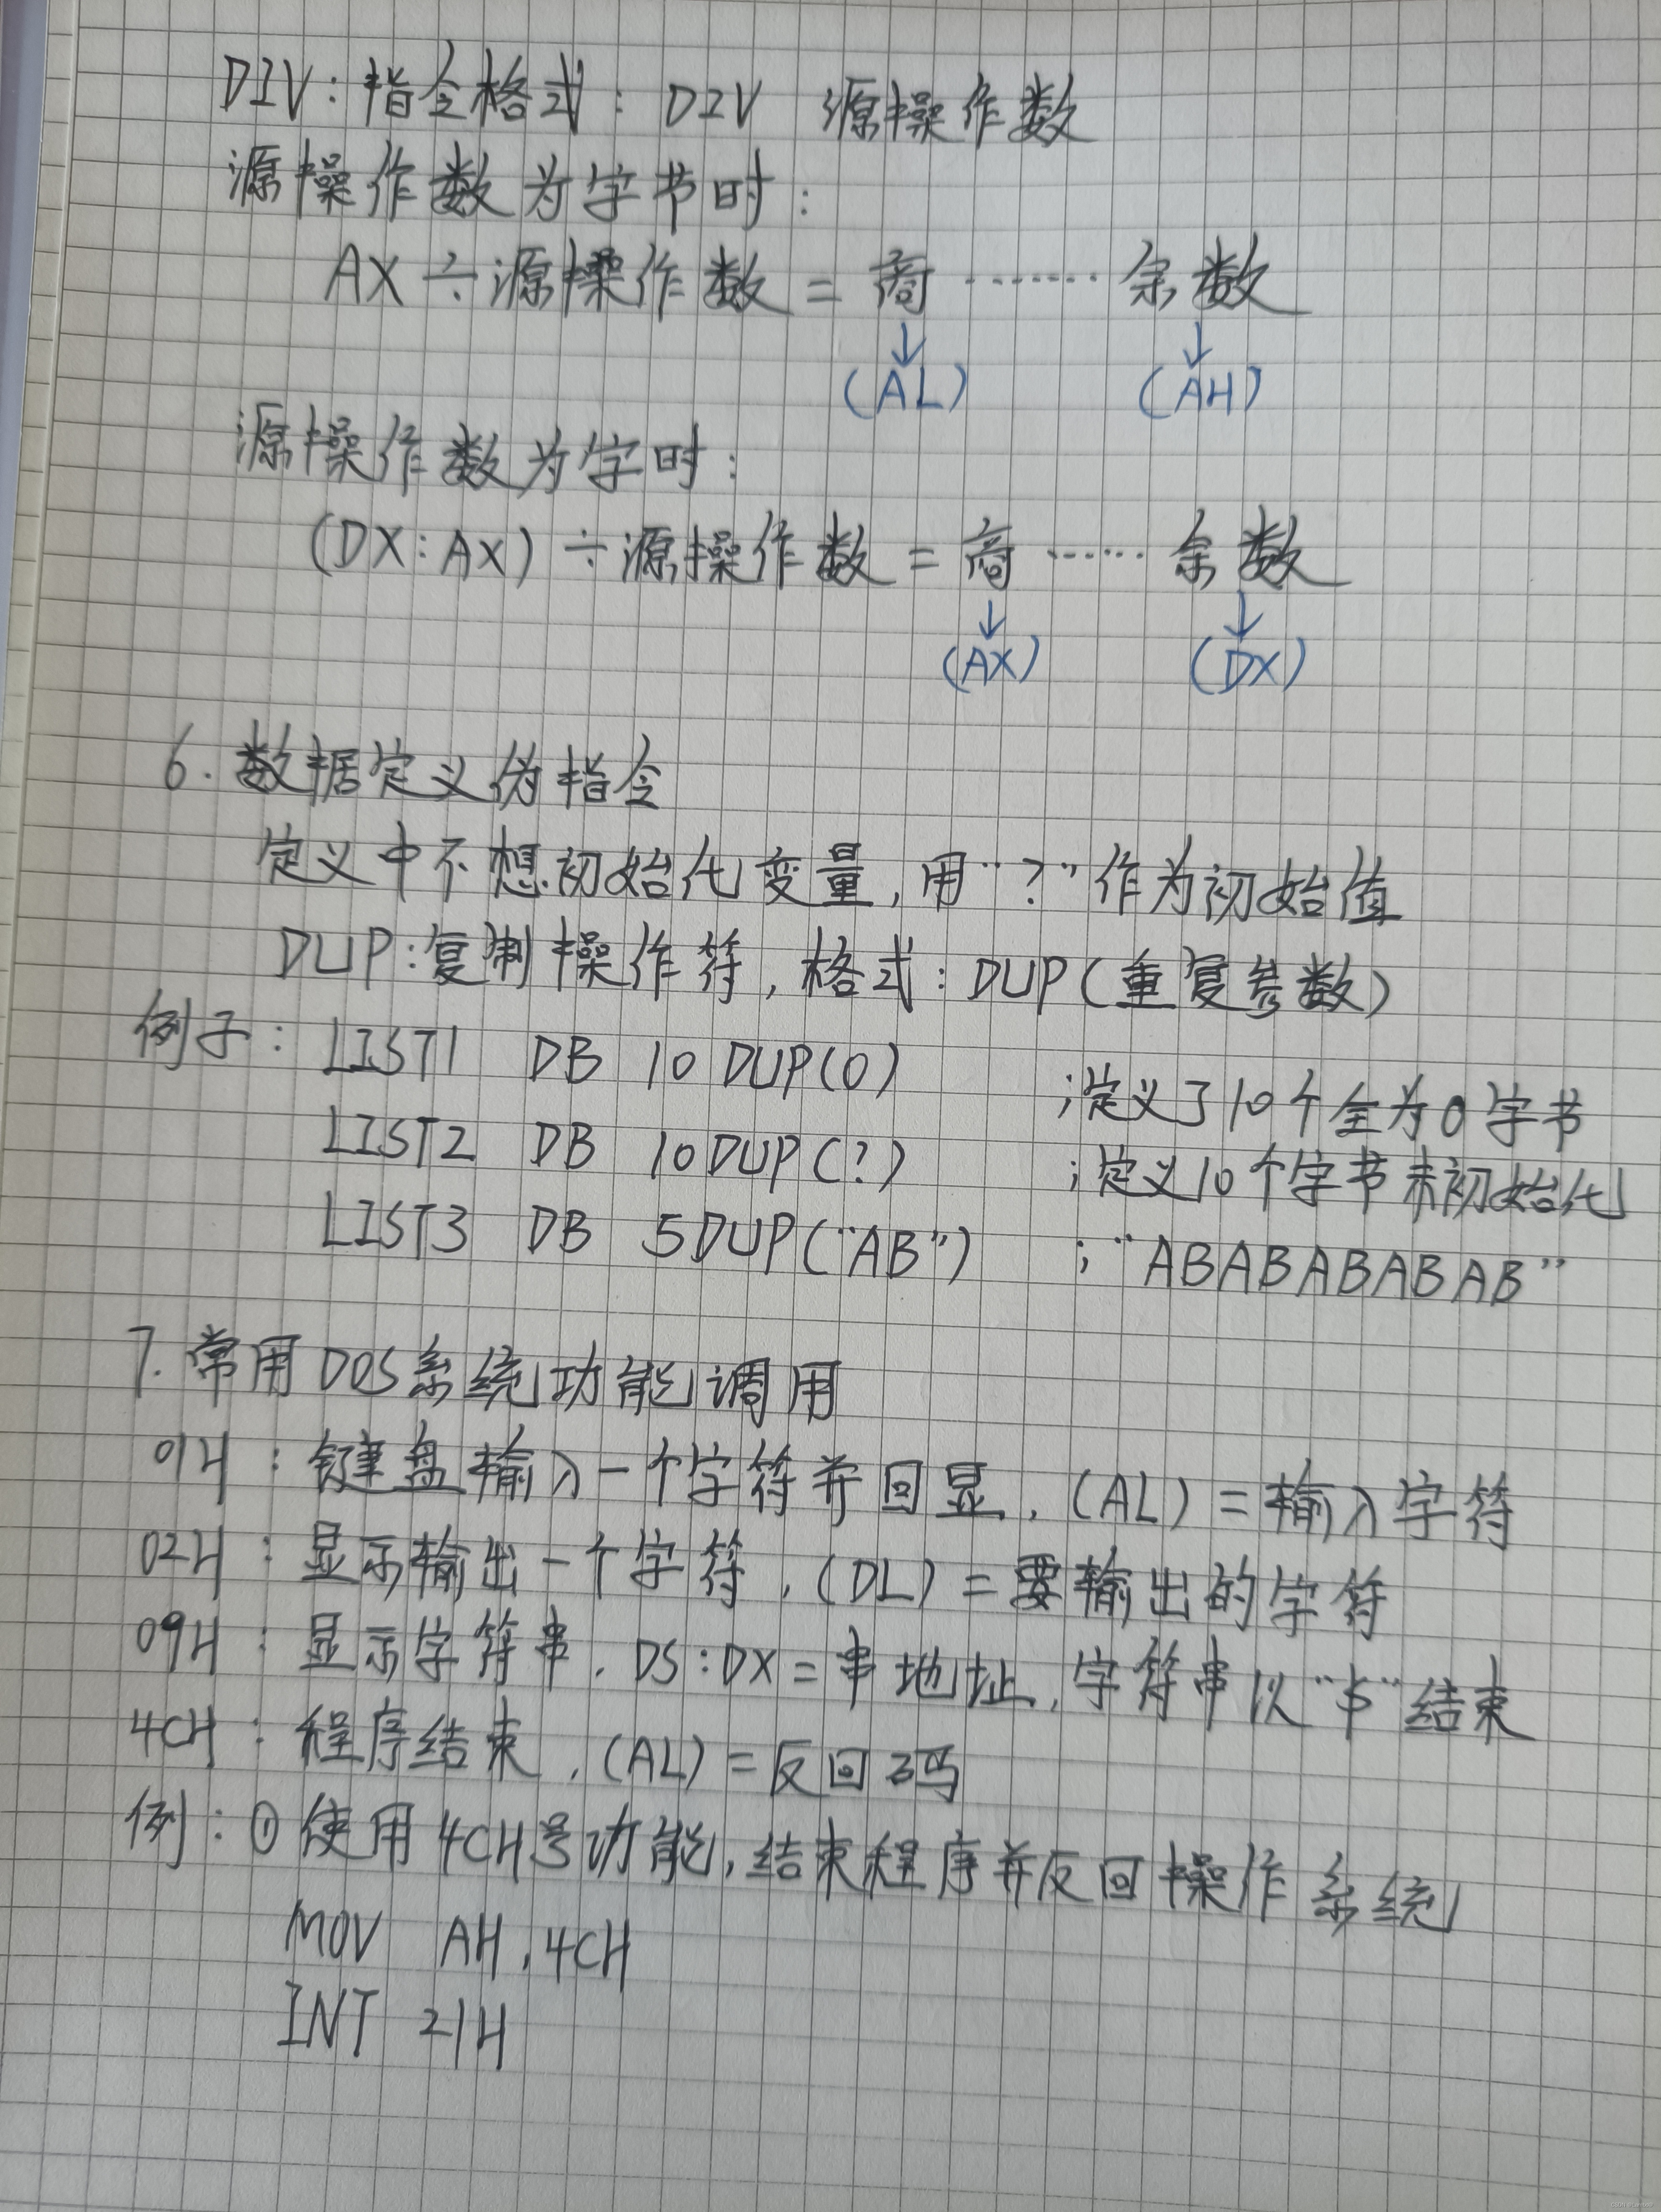 DIV：指令格式：DIV 源操作数
源操作数为字节时：
AX÷源操作数＝商……余数
↓ ↓
(AL) (AH)
源操作数为字时：
(DX:AX)÷源操作数＝商……余数
↓ ↓
(AX) (DX)
6.数据定义伪指令
定义中不想初始化变量,用“?”作为初始值
DUP:复制操作符,格式:DUP(重复参数)
例子: LIST1 DB 10 DUP(0) ;定义了10个全为0字节
LIST2 DB 10DUP(?) ;定义10个字节未初始化
LIST3 DB 5DUP(“AB”) ;“ABABABABAB”
7.常用DOS系统功能调用
01H：键盘输入一个字符并回显,(AL)＝输入字符
02H：显示输出一个字符,(DL)＝要输出的字符
09H：显示字符串,DS:DX＝串地址,字符串以“$”结束
4CH：程序结束,(AL)＝反回码
例：①使用4CH号功能,结束程序并反回操作系统
MOV AH,4CH
INT 21H